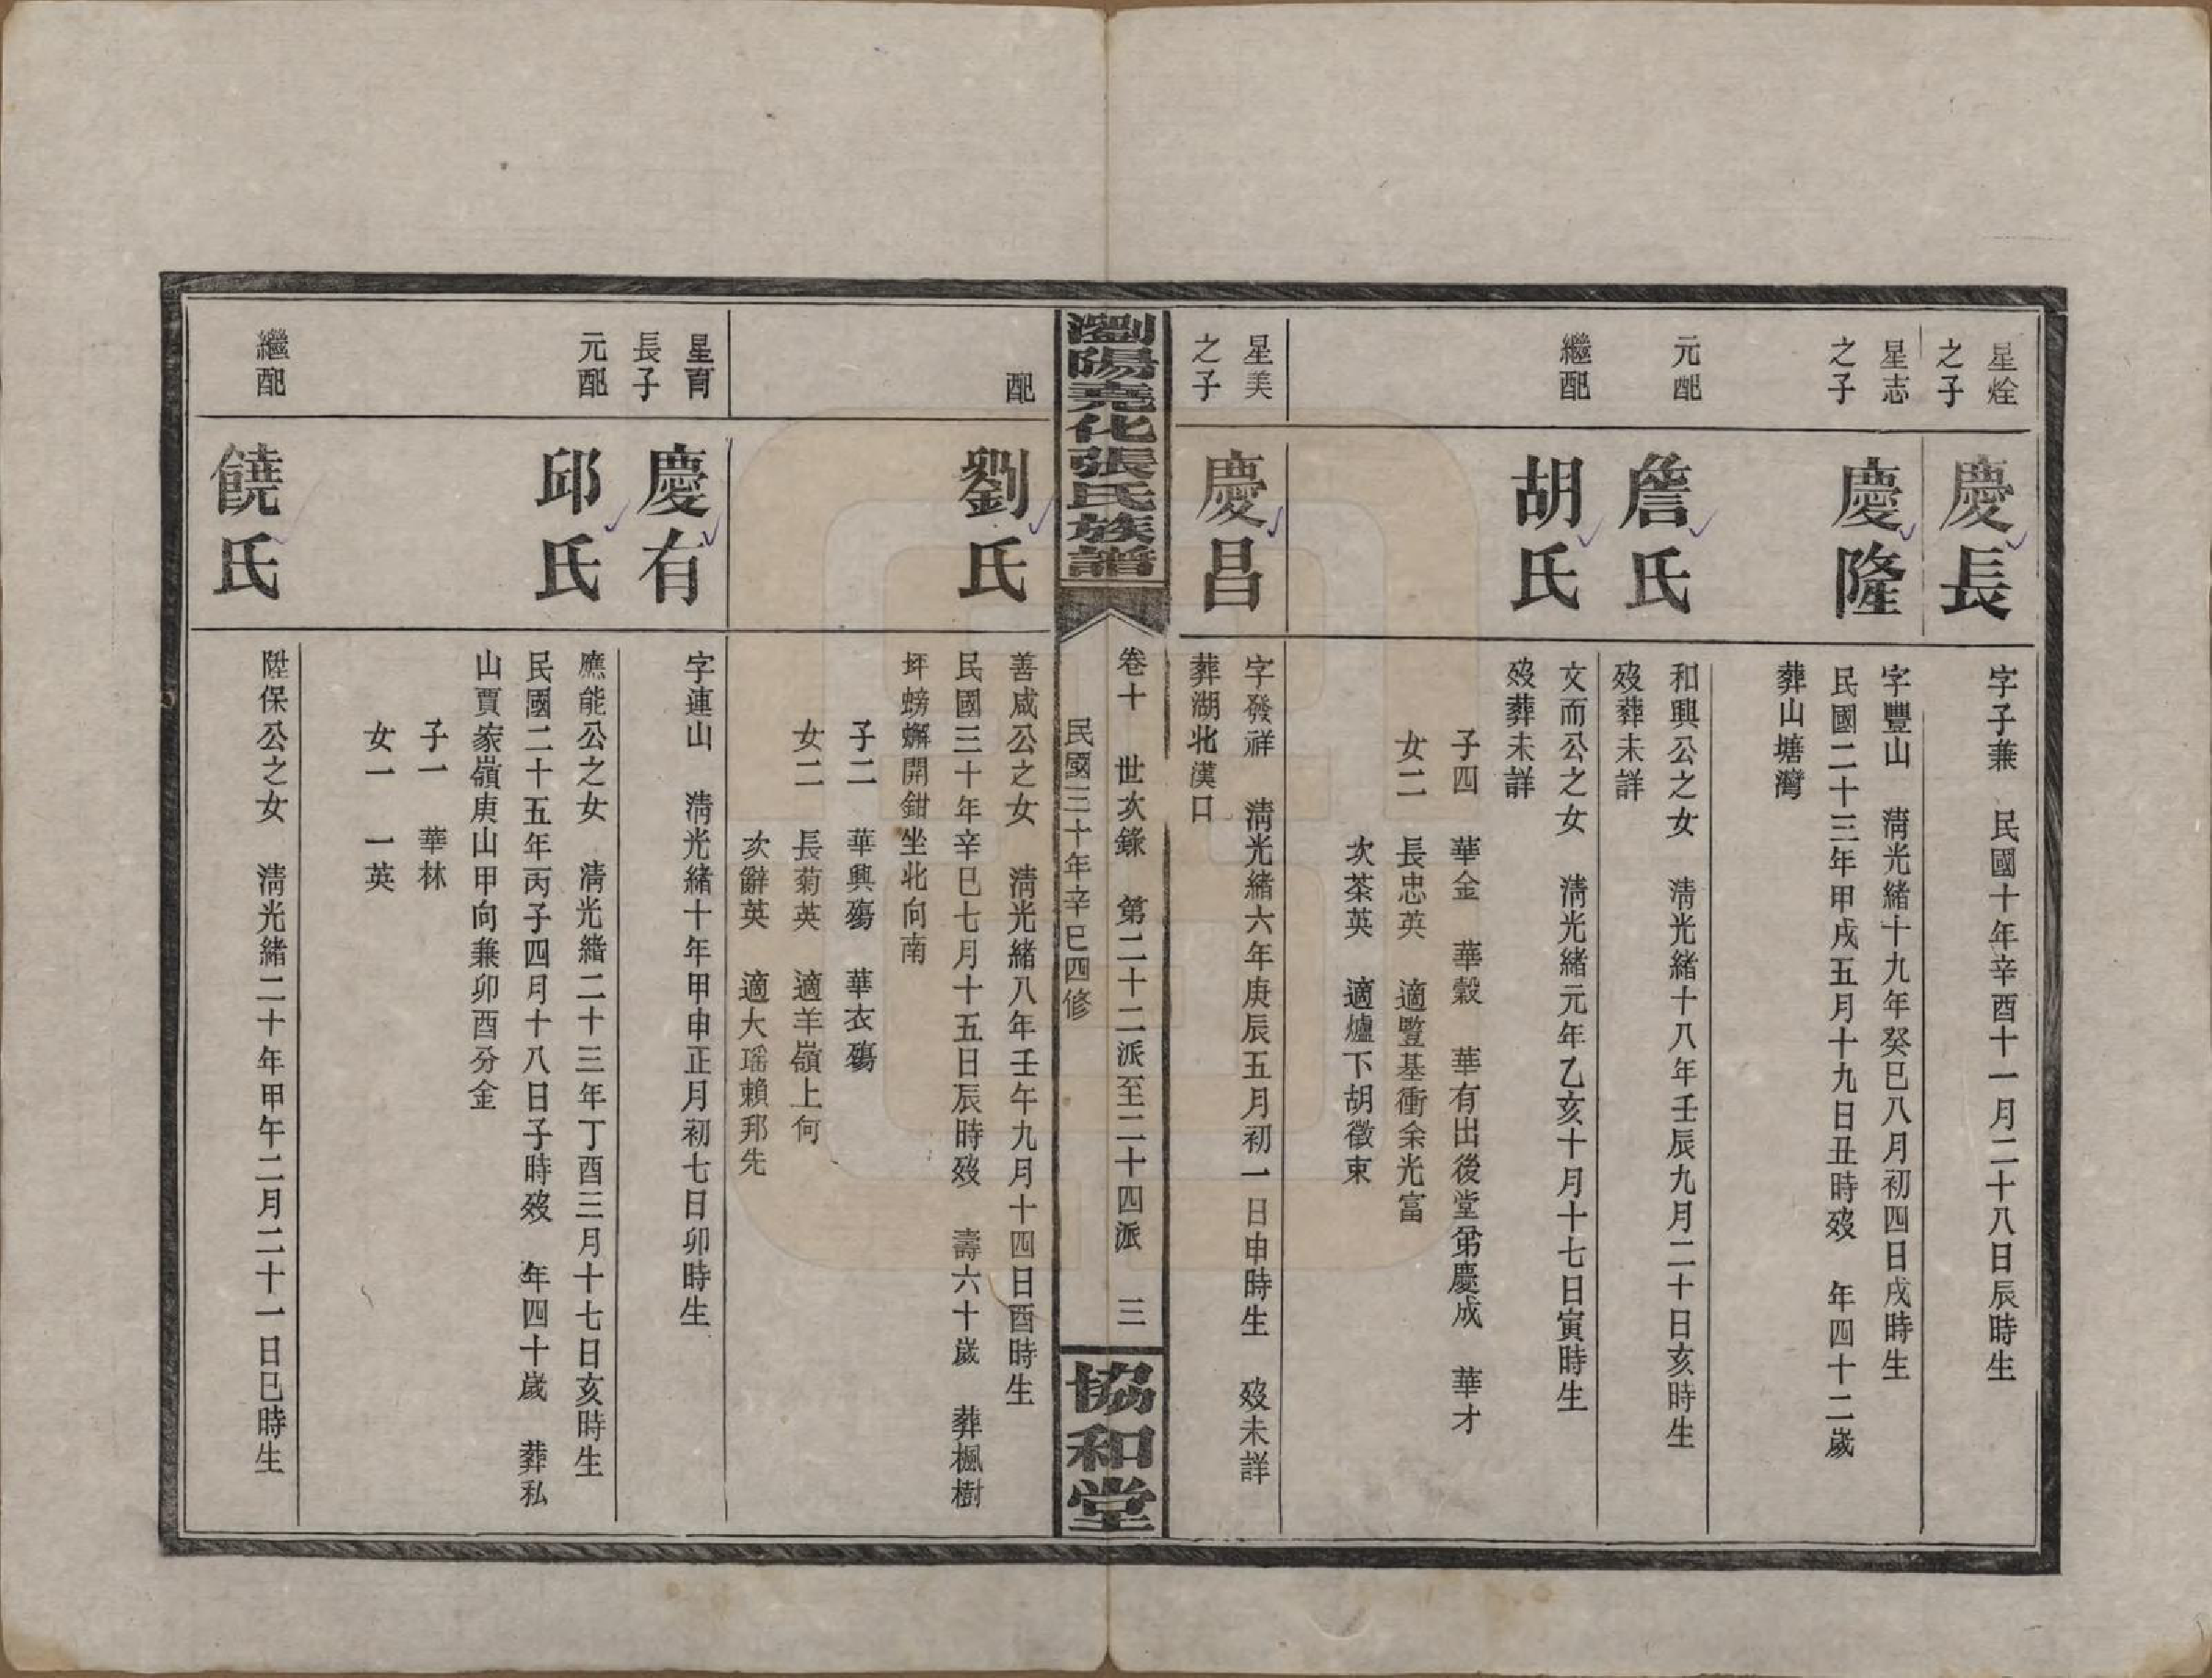 星烇
之子
慶長
字子兼　民國十年辛酉十一月二十八日辰時生
星志
之子
慶隆
字豐山　清光緒十九年癸巳八月初四日戌時生
民國二十三年甲戌五月十九日丑時歿　年四十二歲
葬山塘灣
元配
詹氏
和興公之女　清光緒十八年壬辰九月二十日亥時生
歿葬未詳
繼配
胡氏
文而公之女　清光緒元年乙亥十月十七日寅時生
歿葬未詳
子四　華金　華穀　華有出後堂弟慶成　華才
女二　長忠英　適豎基衝余光富
次茶英　適爐下胡徵東
星美
之子
慶昌
字發祥　清光緒六年庚辰五月初一日申時生　歿未詳
葬湖北漢口
瀏陽堯化張氏族譜
卷十　世次錄　第二十二派至二十四派　三
民國三十年辛巳四修
協和堂
配
劉氏
善咸公之女　清光緒八年壬午九月十四日酉時生
民國三十年辛巳七月十五日辰時歿　壽六十歲　葬楓樹
坪螃蠏開鉗坐北向南
子二　華興殤　華衣殤
女二　長菊英　適羊嶺上何
次辭英　適大瑶賴邦先
星育
長子
慶有
字連山　清光緒十年甲申正月初七日卯時生
元配
邱氏
應能公之女　清光緒二十三年丁酉三月十七日亥時生
民國二十五年丙子四月十八日子時歿　年四十歲　葬私
山賈家嶺庚山甲向兼卯酉分金
子一　華林
女一　一英
繼配
饒氏
陞保公之女　清光緒二十年甲午二月二十一日巳時生